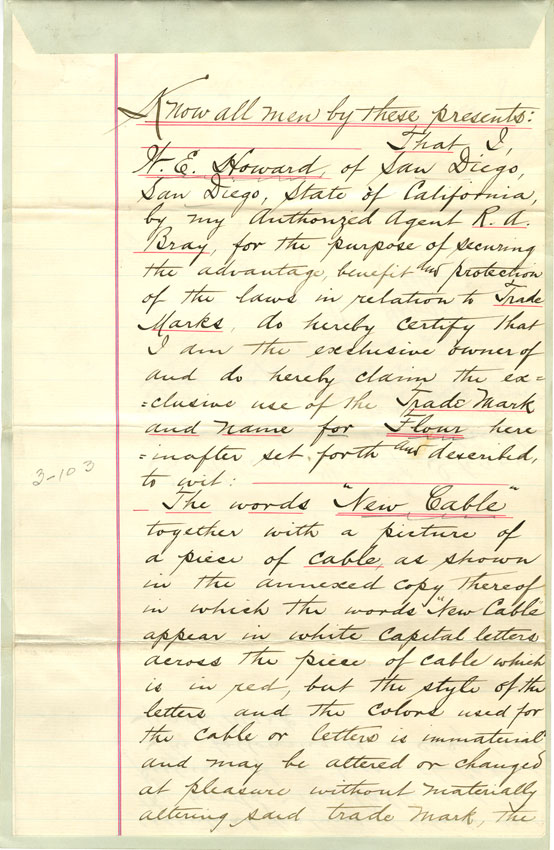 Know all men by these presents:
That I,
W. E. Howard, of San Diego,
San Diego, State of California,
by my Authorized Agent R. A.
Bray, for the purpose of securing
the advantage, benefit and protection
of the laws in relation to Trade
Marks, do hereby certify that
I am the exclusive owner of
and do hereby claim the ex=
=clusive use of the Trade Mark
and name for Flour here
=inafter set forth and described,
to wit:
3-103
The words "New Cable"
together with a picture of
a piece of cable, as shown
in the annexed copy thereof
in which the words "New Cable"
appear in white capital letters
across the piece of cable which
is in red, but the style of the
letters and the colors used for
the cable or letters is immaterial
and may be altered or changed
at pleasure without materially
altering said trade mark, the